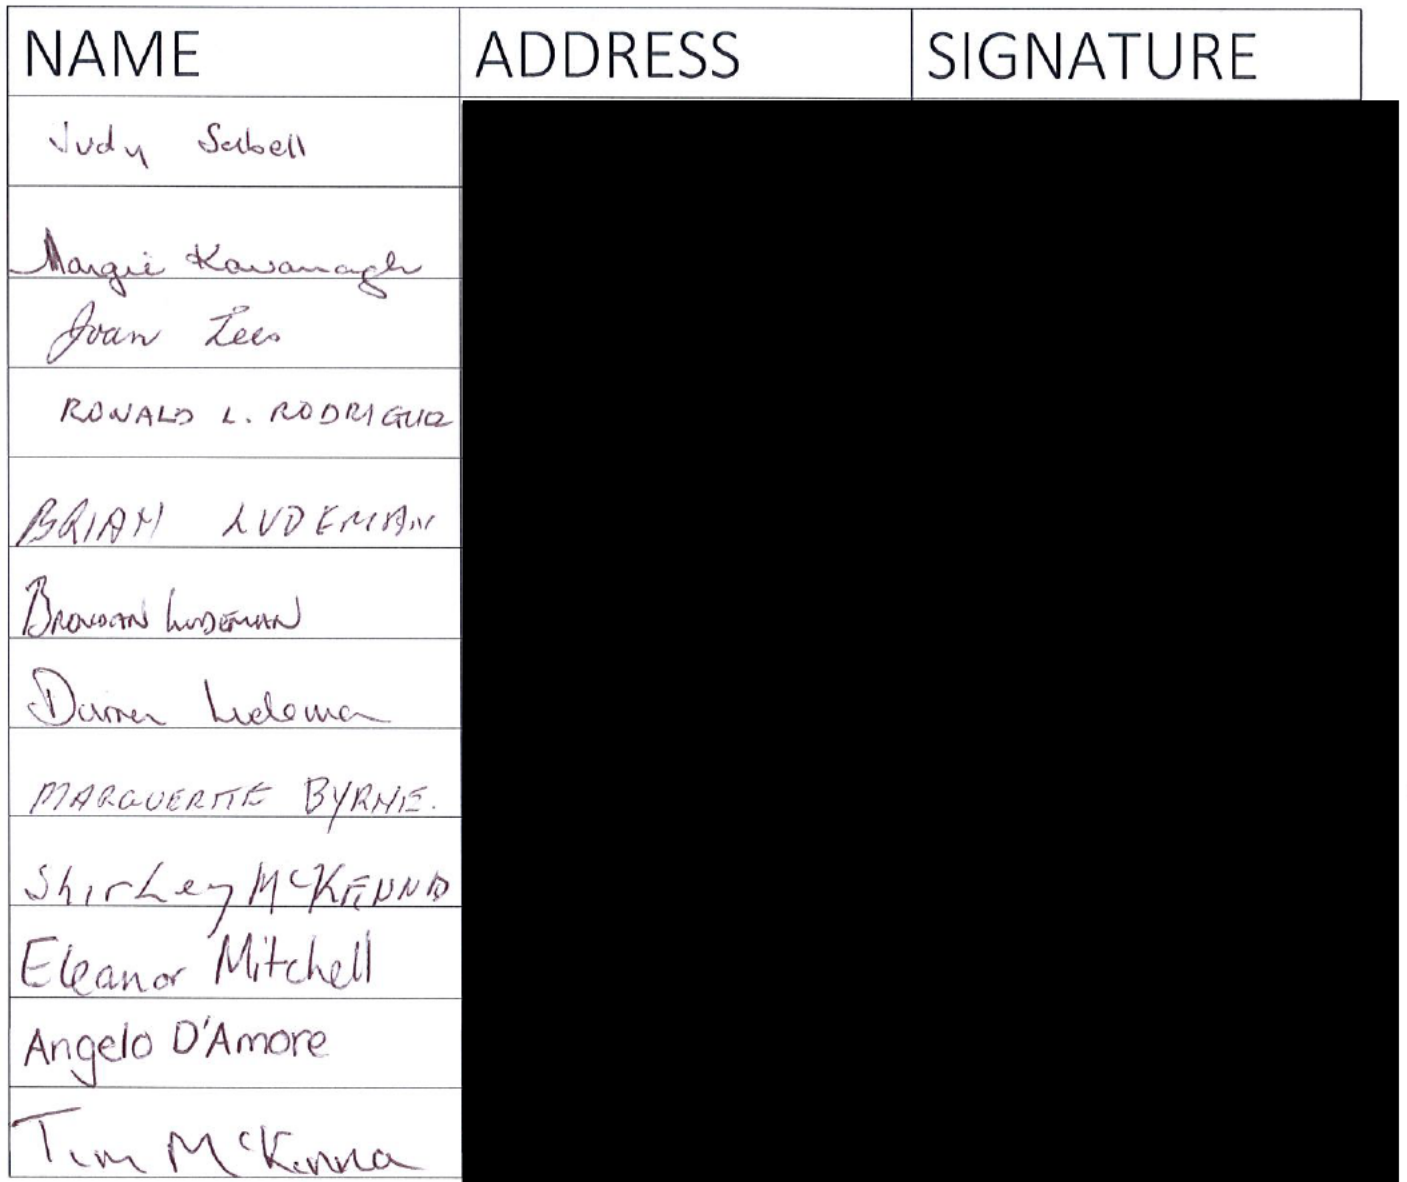 NAME ADDRESS SIGNATURE
Judy Sabell
Margie Kavanagh
Joan Lees
RONALD L. RODRIGUEZ
BRIAN LUDEMAN
BRENDAN LUDEMAN
Darren Ludeman
MARGUERITE BYRNE.
Shirley McKENNA
Eleanor Mitchell
Angelo D'Amore
Tim McKenna